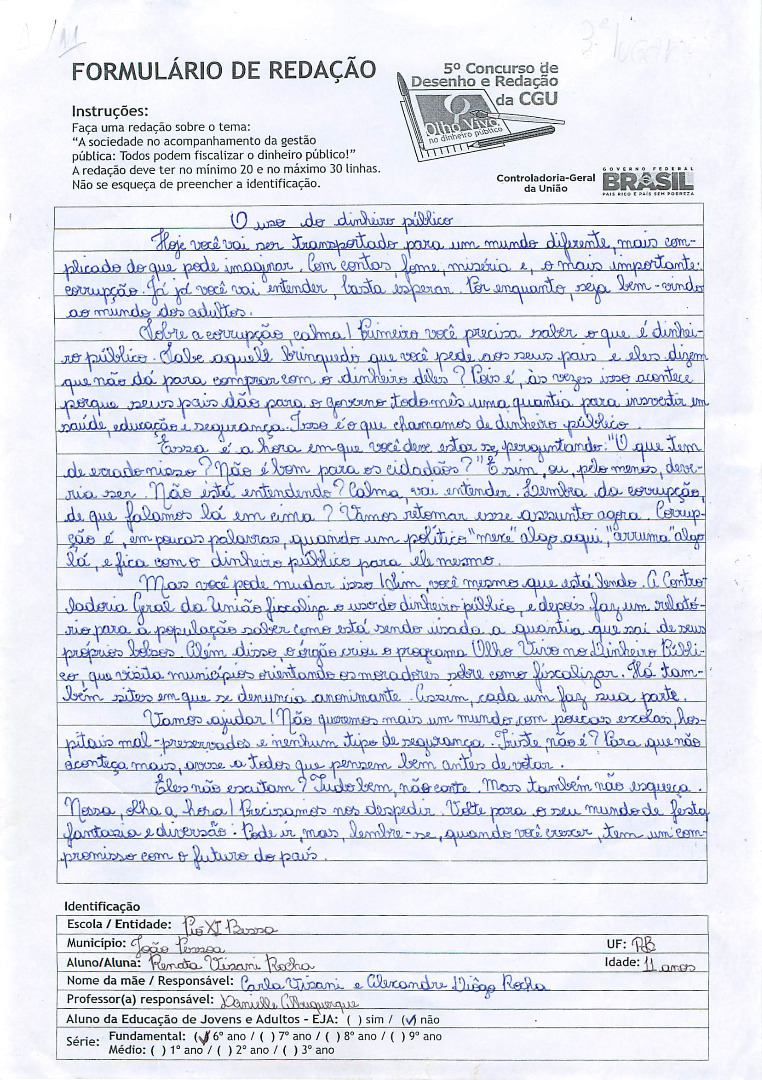 1/11
3º lugar
FORMULÁRIO DE REDAÇÃO
5º Concurso de
Desenho e Redação
da CGU
Olho Vivo
no dinheiro público
Instruções:
Faça uma redação sobre o tema:
"A sociedade no acompanhamento da gestão
pública: Todos podem fiscalizar o dinheiro público!"
A redação deve ter no mínimo 20 e no máximo 30 linhas.
Não se esqueça de preencher a identificação.
Controladoria-Geral
da União
GOVERNO FEDERAL
BRASIL
PAÍS RICO É PAÍS SEM POBREZA
O uso do dinheiro público
Hoje você vai ser transportado para um mundo diferente, mais com-
plicado do que pode imaginar. Com contas, fome, miséria e, o mais importante:
corrupção. Já já você vai entender, basta esperar. Por enquanto, seja bem-vindo
ao mundo dos adultos.
Sobre a corrupção, calma! Primeiro você precisa saber o que é dinhei-
ro público. Sabe aquele brinquedo que você pede aos seus pais e eles dizem
que não dá para comprar com o dinheiro deles? Pois é, às vezes isso acontece
porque seus pais dão para o governo todo mês uma quantia para investir em
saúde, educação e segurança. Isso é o que chamamos de dinheiro público.
Essa é a hora em que você deve estar se perguntando: "O que tem
de errado nisso? Não é bom para os cidadãos?" É sim, ou, pelo menos, deve-
ria ser. Não está entendendo? Calma, vai entender. Lembra da corrupção,
de que falamos lá em cima? Vamos retomar esse assunto agora. Corrup-
ção é, em poucas palavras, quando um político "mexe" algo aqui, "arruma" algo
lá, e fica com o dinheiro público para ele mesmo.
Mas você pode mudar isso! Sim, você mesmo que está lendo. A Contro-
ladoria Geral da União fiscaliza o uso do dinheiro público, e depois faz um relató-
rio para a população saber como está sendo usada a quantia que sai de seus
próprios bolsos. Além disso o órgão criou o programa Olho Vivo no Dinheiro Públi-
co, que visita municípios orientando os moradores sobre como fiscalizar. Há tam-
bém sites em que se denuncia anonimante. Assim, cada um faz sua parte.
Vamos ajudar! Não queremos mais um mundo com poucas escolas, hos-
pitais mal-preservados e nenhum tipo de segurança. Triste não é? Para que não
aconteça mais, avise a todos que pensem bem antes de votar.
Eles não escutam? Tudo bem, não conte. Mas também não esqueça.
Nossa, olha a hora! Precisamos nos despedir. Volte para o seu mundo de festa
fantazia e diversão. Pode ir, mas, lembre-se, quando você crescer, tem um com-
promisso com o futuro do país.
Identificação
Escola / Entidade: Pio XI Bessa
Município: João Pessoa UF: PB
Aluno/Aluna: Renata Visani Rocha Idade: 11 anos
Nome da mãe / Responsável: Carla Visani e Alexandre Diôgo Rocha
Professor(a) responsável: Danielle Albuquerque
Aluno da Educação de Jovens e Adultos - EJA: ( ) sim / (✓) não
Série: Fundamental: (✓) 6º ano / ( ) 7º ano / ( ) 8º ano / ( ) 9º ano
Médio: ( ) 1º ano / ( ) 2º ano / ( ) 3º ano